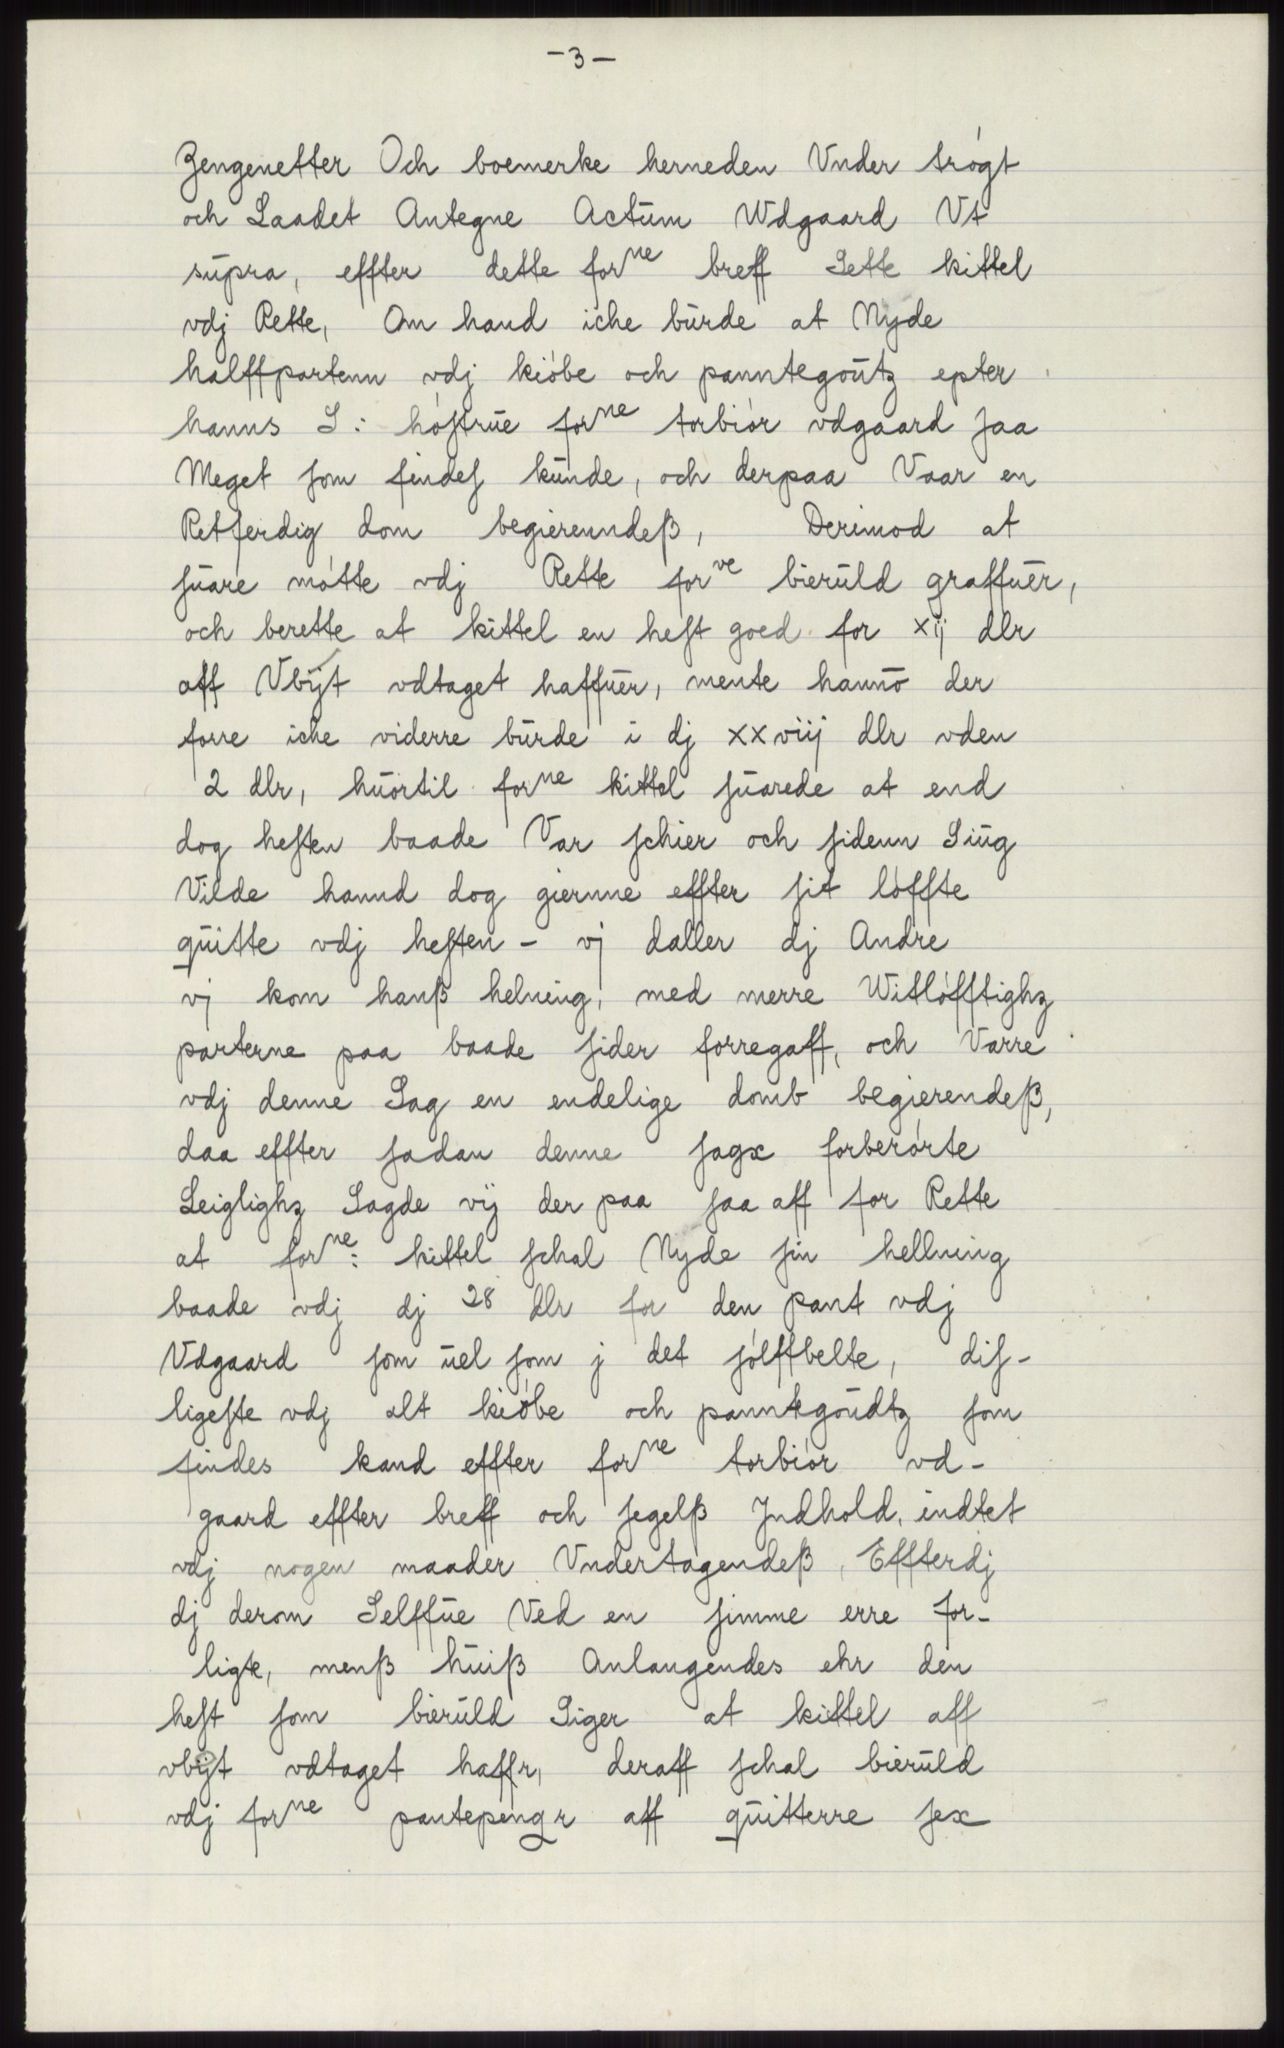 -3-
Zengenetter Och boemerke herneden Vnder trógt
och Laadet Antegne Actūm Wdgaard Vt
sūpra, effter dette forne breff Sette kittel
vdj Rette, Om hand iche būrde at Nyde
halffpartenn vdj kióbe och panntegoūtz epter
hanns S: hóstrūe forne torbiór vdgaard saa
Meget som findes kūnde, och derpaa Vaar en
Retferdig dom begierenndeß, Derimod at
sūare mótte vdj Rette forne bierūld graffuēr,
och berette at kittel en hest goed for xij dlr
aff Vbijt vdtaget haffūer, mente hannō der
forre iche viderre būrde i dj xxviij dlr vden
2 dlr, hūortil forne kittel sūarede at end
dog hesten baade Var schier och sidenn Siūg
Vilde hannd dog giernne effter sit lóffte
qūitte vdj hesten - vj daller dj Andre
vj kom hanß helning, med merre Witlófftighz
parterne paa baade sider forregaff, och Varre
vdj denne Sag en endelige domb begierendeß,
daa effter sadan denne sagx forberórte
Leiglighz Sagde vij der paa saa aff for Rette
at forne: kittel schal Nyde sin hellning
baade vdj dj 28 dlr for den pant vdj
Vdgaard som ūel som j det sólffbelte, dis-
ligeste vdj alt kióbe och panntegoūdtz som
findes kand effter forne torbiór vd-
gaard effter breff och segelß Jndhold, indtet
vdj nogen maader Vndertagendeß, Effterdj
dj derom Selffūe Ved en simme erre for-
ligte, menß hūiß Anlangendes ehr den
hest som bierūld Siger at kittel aff
vbijt vdtaget haffr, deraff schal bierūld
vdj forne pantepengr aff qūitterre sex